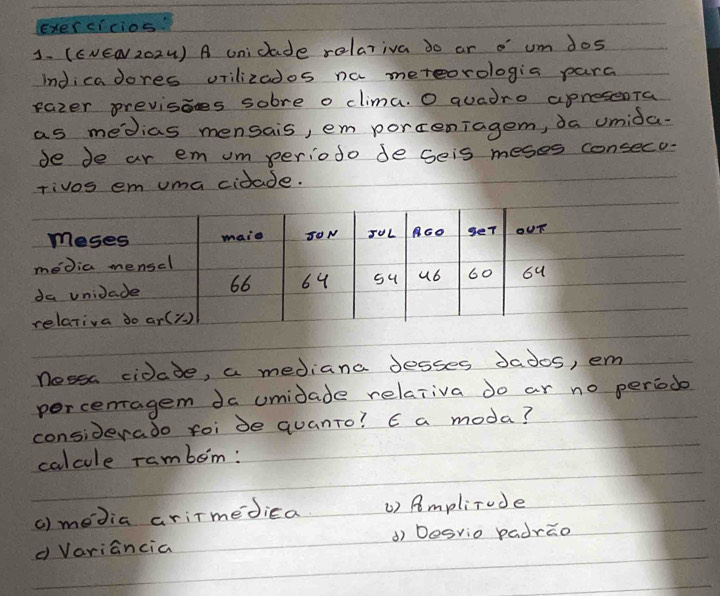 Exercícios:
1- (ENEM 2024) A unidade relativa do ar é um dos
indicadores utilizados na meteorologia para
fazer previsões sobre o clima. O quadro apresenta
as médias mensais, em porcentagem, da umida-
de de ar em um período de seis meses consecu-
tivos em uma cidade.
meses maio JUN JUL AGO SET OUT
média mensal
da unidade 66 64 54 46 60 64
relativa do ar(%)
nessa cidade, a mediana desses dados, em
porcentagem da umidade relativa do ar no período
considerado foi de quanto? E a moda?
calcule também:
a) média aritmédica b) Amplitude
c) Variância d) Desvio padrão